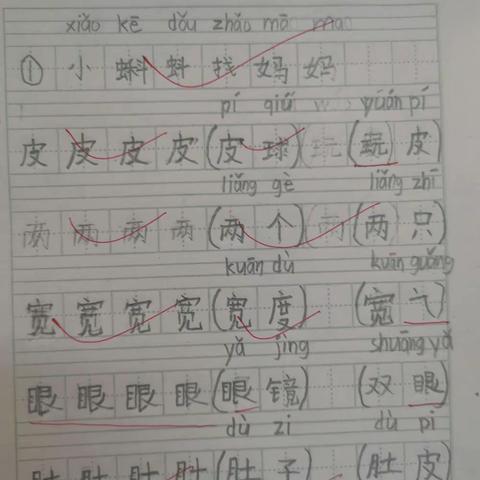 xiǎo kē dǒu zhǎo mā ma
① 小 蝌 蚪 找 妈 妈
pí qiú yuán pí
皮 皮 皮 皮 (皮 球) (玩 皮)
liǎng gè liǎng zhī
两 两 两 两 (两 个) (两 只)
kuān dù kuān guǎng
宽 宽 宽 宽 (宽 度) (宽 )
yǎ jìng shuāng yǎ
眼 眼 眼 眼 (眼 镜) (双 眼)
dù zi dù pí
肚 肚 肚 肚 (肚 子) (肚 皮)